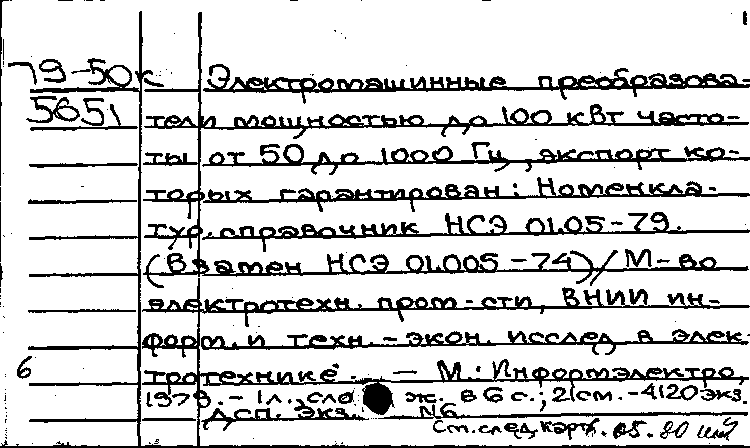 79-50к Электромашинные преобразова-
5651 тели мощностью до 100 кВт часто-
ты от 50 до 1000 Гц, экспорт ко-
торых гарантирован: Номенкла-
тур. справочник НСЭ 01.05-79.
(Взамен НСЭ 01.005-74)/М-во
электротехн. пром-сти, ВНИИ ин-
форм. и техн.-экон. исслед. в элек-
6 тротехнике. — М.: Информэлектро,
1979.-1л., сло ж. в 6 с.; 21см.-4120экз.
Дсп. Экз. №6
См. след. карт. 80